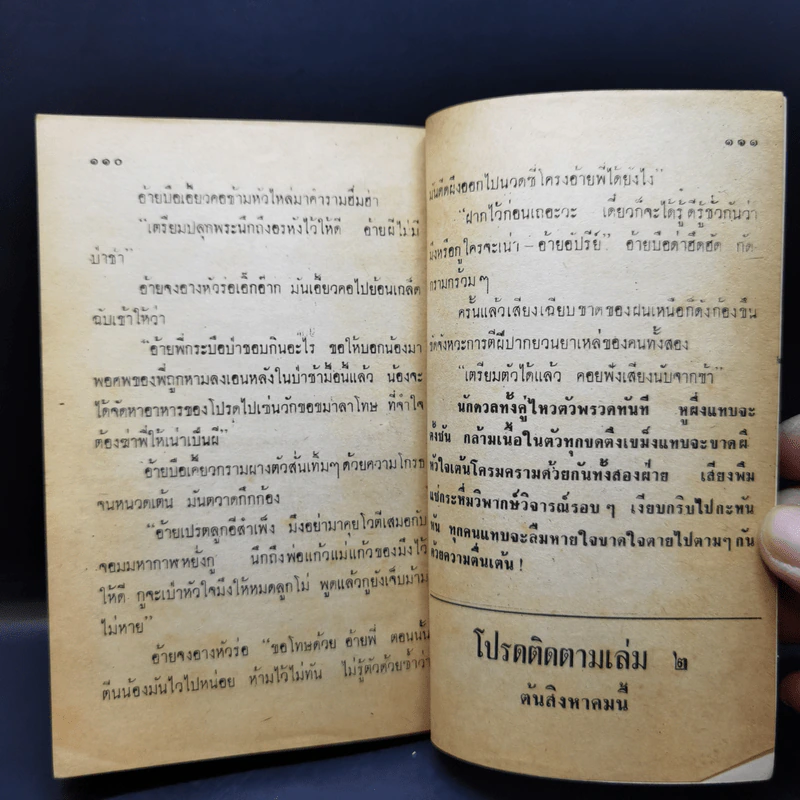 ๑๑๐
อ้ายบือเอี้ยวคอข้ามหัวไหล่มาคำรามฮึ่มฮ่า
"เตรียมปลุกพระนึกถึงอรหังไว้ให้ดี อ้ายผีไม่มี
ป่าช้า"
อ้ายจงอางหัวร่อเอิ๊กอ๊าก มันเอี้ยวคอไปย้อนเกล็ด
ฉับเข้าให้ว่า
"อ้ายพี่กระบือบ้าชอบกินอะไร ขอให้บอกน้องมา
พอศพของพี่ถูกหามลงเอนหลังในป่าช้ามื้อนี้แล้ว น้องจะ
ได้จัดหาอาหารของโปรดไปเซ่นวักขอขมาลาโทษ ที่จำใจ
ต้องฆ่าพี่ให้เน่าเป็นผี"
อ้ายบือเคี้ยวกรามผางตัวสั่นเทิ่มๆ ด้วยความโกรธ
จนหนวดเต้น มันตวาดกึกก้อง
"อ้ายเปรตลูกอีสำเพ็ง มึงอย่ามาคุยโวตีเสมอกับ
จอมมหากาฬหยั่งกู นึกถึงพ่อแก้วแม่แก้วของมึงไว้
ให้ดี กูจะเป่าหัวใจมึงให้หมดลูกโม่ พูดแล้วกูยังเจ็บม้าม
ไม่หาย"
อ้ายจงอางหัวร่อ "ขอโทษด้วย อ้ายพี่ ตอนนั้น
ตีนน้องมันไวไปหน่อย ห้ามไว้ไม่ทัน ไม่รู้ตัวด้วยซ้ำว่า
๑๑๑
มันดีดผึงออกไปนวดซี่โครงอ้ายพี่ได้ยังไง"
"ฝากไว้ก่อนเถอะวะ เดี๋ยวก็จะได้รู้ดีรู้ชั่วกันว่า
มึงหรือกูใครจะเน่า – อ้ายอัปรีย์" อ้ายบือด่าฮึดฮัด กัด
กรามกร้วมๆ
ครั้นแล้วเสียงเฉียบขาดของฝนเหนือก็ดังก้องขึ้น
ขัดจังหวะการตีฝีปากยวนยาเหล่ของคนทั้งสอง
"เตรียมตัวได้แล้ว คอยฟังเสียงนับจากข้า"
นักดวลทั้งคู่ไหวตัวพรวดทันที หูผึ่งแทบจะ
ตั้งชัน กล้ามเนื้อในตัวทุกขดตึงเขม็งแทบจะขาดผึง
หัวใจเต้นโครมครามด้วยกันทั้งสองฝ่าย เสียงพึม
แซ่กระหึ่มวิพากษ์วิจารณ์รอบๆ เงียบกริบไปกะทัน
หัน ทุกคนแทบจะลืมหายใจขาดใจตายไปตามๆ กัน
ด้วยความตื่นเต้น !
โปรดติดตามเล่ม ๒
ต้นสิงหาคมนี้